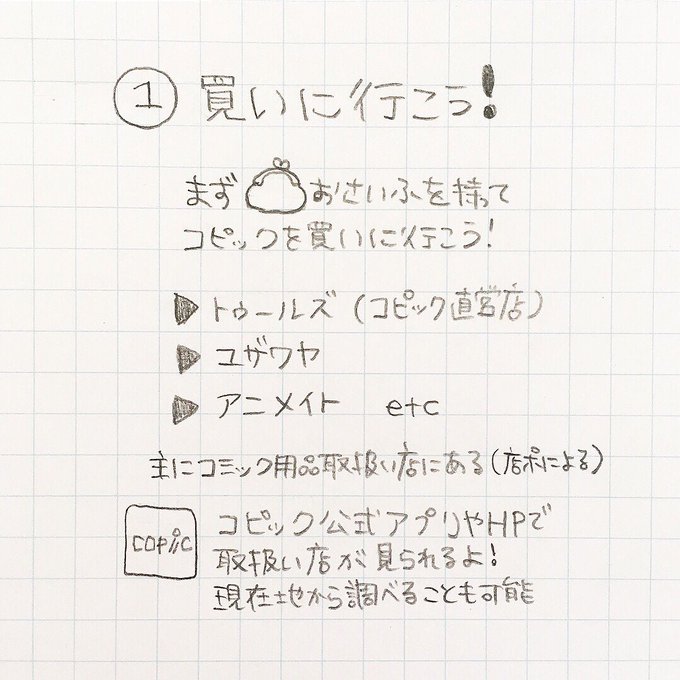 ① 買いに行こう!
まず おさいふを持って
コピックを買いに行こう!
▶ トゥールズ (コピック直営店)
▶ ユザワヤ
▶ アニメイト etc
主にコミック用品取扱い店にある(店ポによる)
copic
コピック公式アプリやHPで
取扱い店が見られるよ!
現在地から調べることも可能